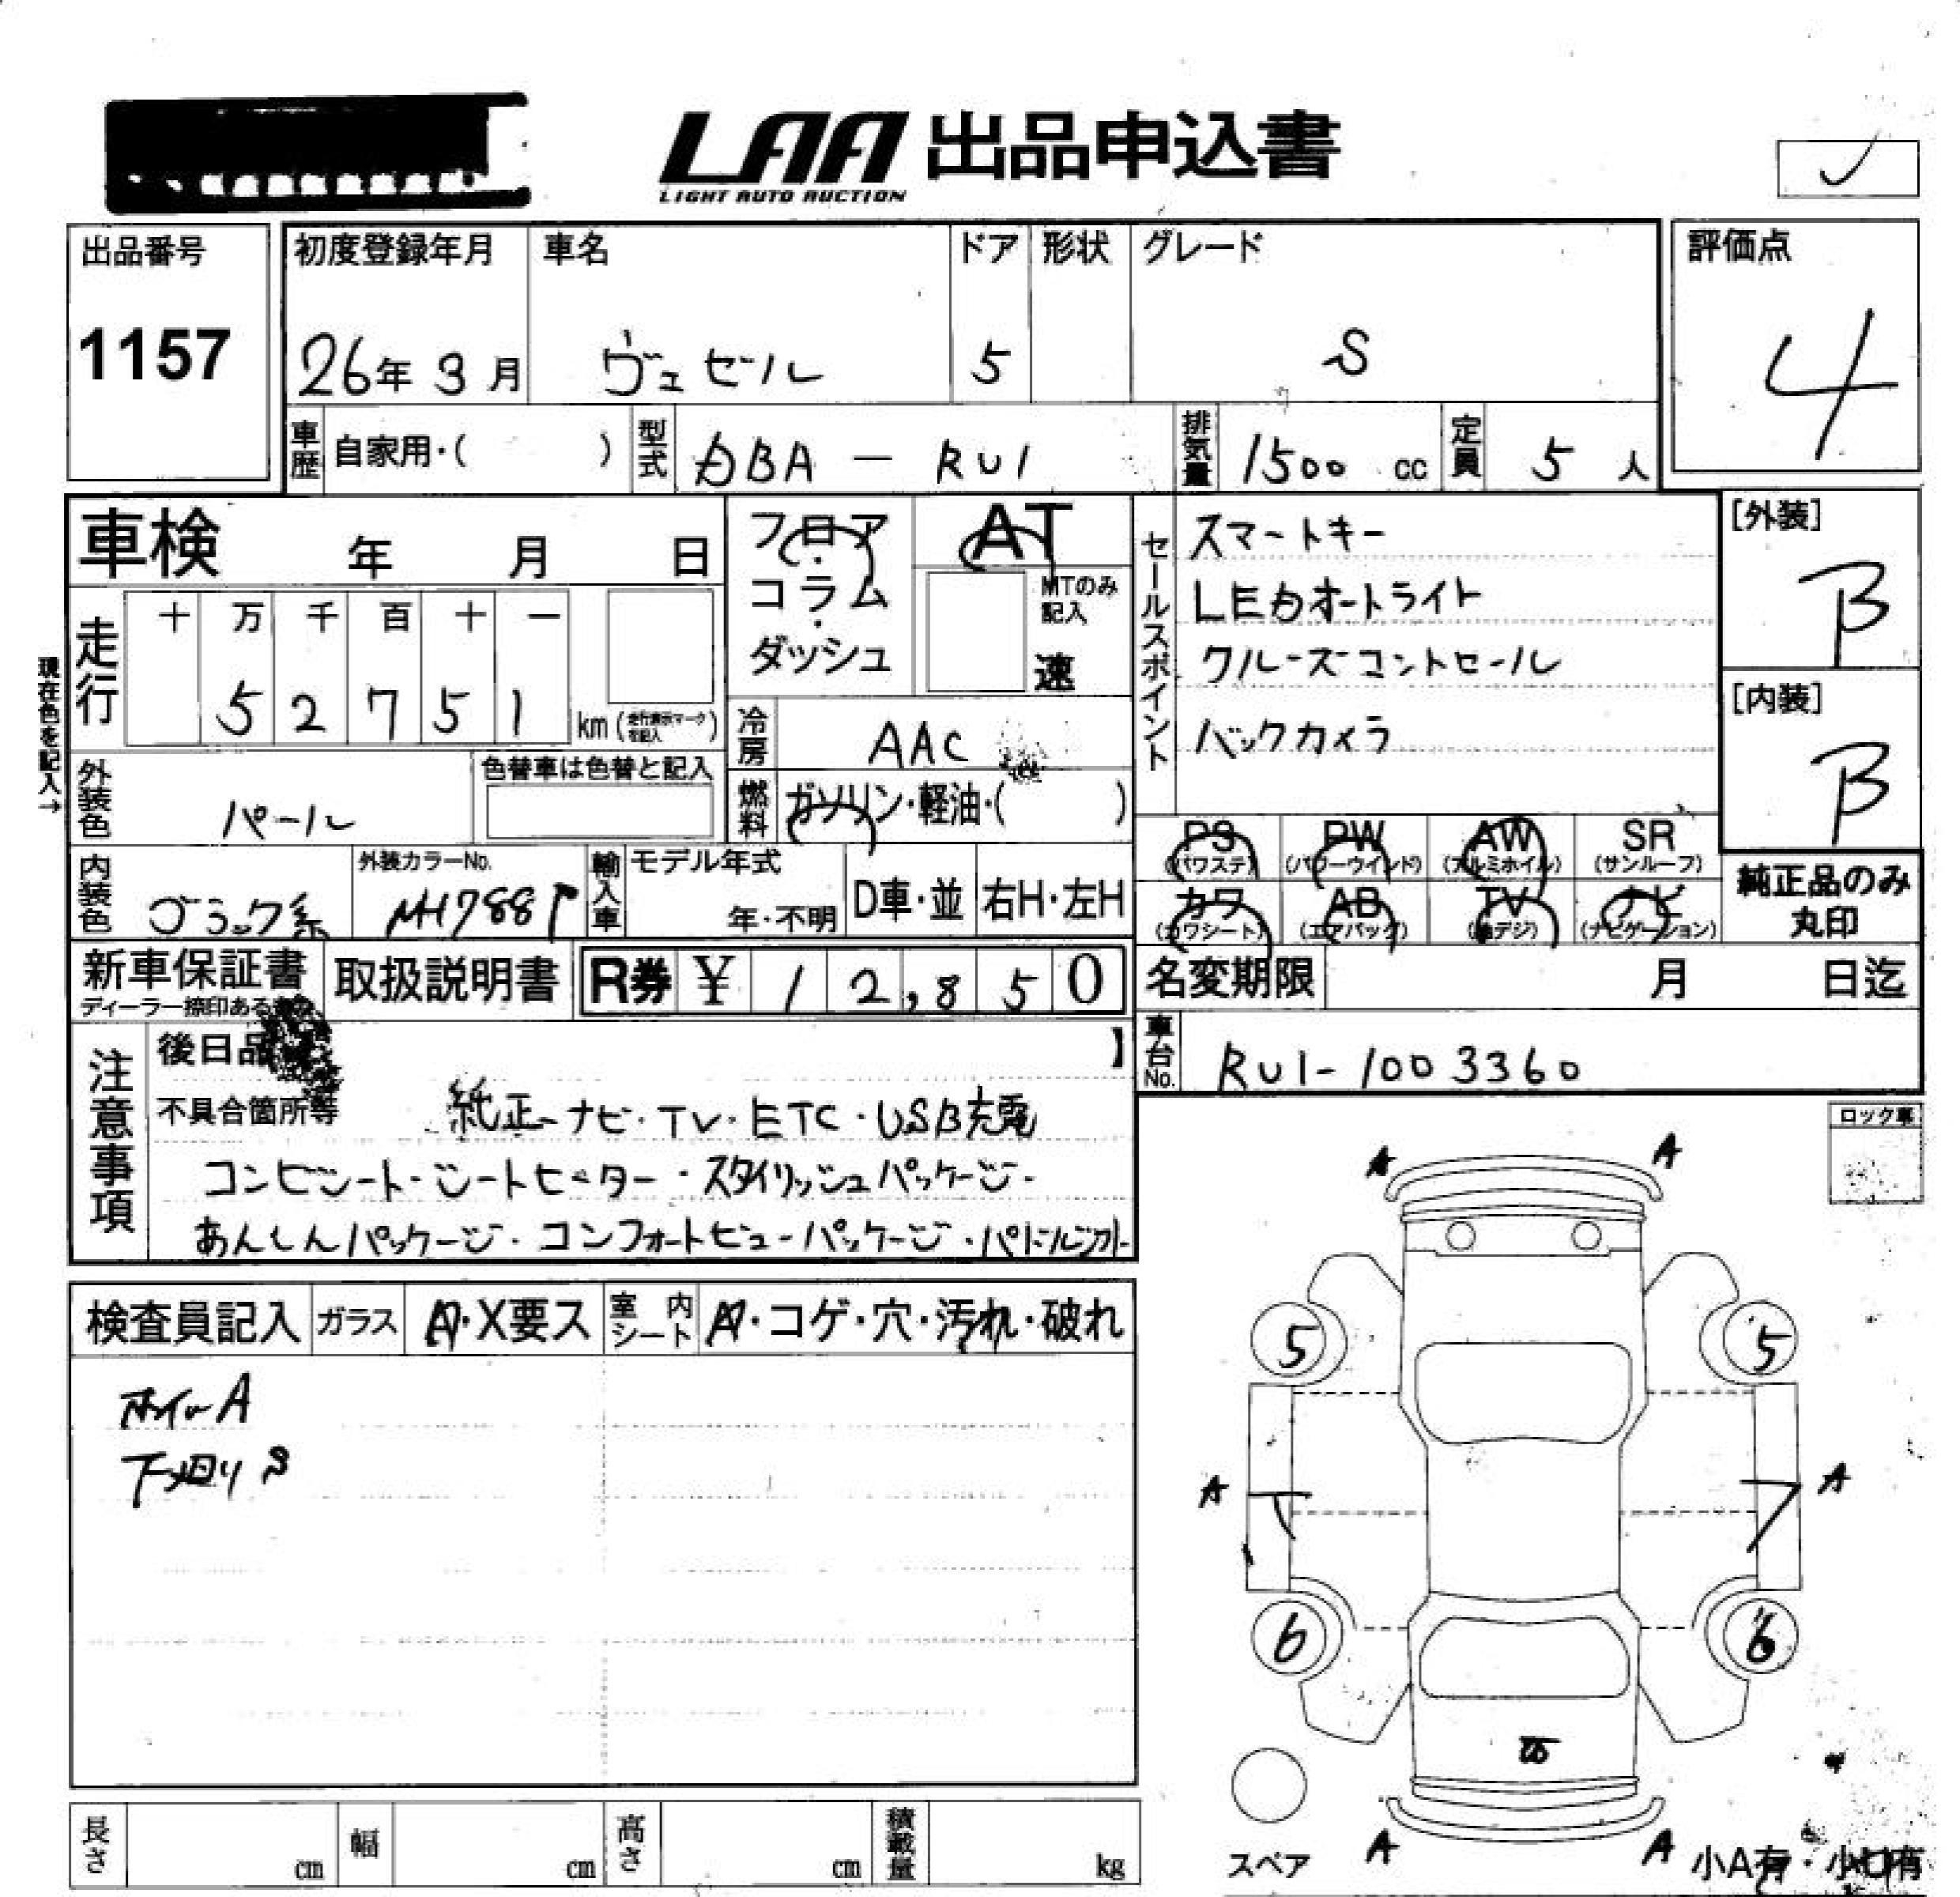 LAA 出品申込書
LIGHT AUTO AUCTION
出品番号 1157
初度登録年月 26年3月
車名 ヴェゼル
ドア 5
形状
グレード S
評価点 4
車歴 自家用・( )
型式 DBA - RU1
排気量 1500 cc
定員 5 人
車検 年 月 日
フロア・コラム・ダッシュ
AT
MTのみ記入 速
セールスポイント
スマートキー
LEDオートライト
クルーズコントロール
バックカメラ
[外装] B
[内装] B
現在色を記入→
走行 十 万 千 百 十 一
5 2 7 5 1 km (走行表示マークを記入)
冷房 AAC
外装色 パール
色替車は色替と記入
燃料 ガソリン・軽油・( )
PS (パワステ) PW (パワーウインド) AW (アルミホイル) SR (サンルーフ)
カワ (カワシート) AB (エアバッグ) TV (地デジ) ナビ (ナビゲーション)
純正品のみ丸印
内装色 ブラック系
外装カラーNo. NH788P
輸入車 モデル年式 年・不明 D車・並 右H・左H
新車保証書
ディーラー捺印ある
取扱説明書
R券 ¥ 12,850
名変期限 月 日迄
車台No. RU1-1003360
注意事項
後日品 】
不具合箇所等 純正ナビ・TV・ETC・USB充電
コンビシート・シートヒーター・スタイリッシュパッケージ・
あんしんパッケージ・コンフォートビューパッケージ・パドルシフト
ロック車
検査員記入 ガラス A・X要ス 室内シート A・コゲ・穴・汚れ・破れ
ホイルA
下廻りS
A A
5 5
A A
6 6
スペア
A A
小A有・小U有
長さ cm 幅 cm 高さ cm 積載量 kg